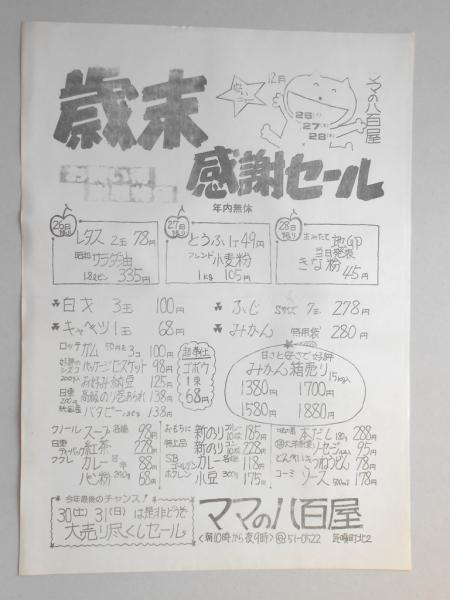 歳末
感謝セール
年内無休
12月
26(火)
27(水)
28(木)
ママの八百屋
26日限り
レタス 2玉 78円
昭和 サラダ油
1.8ℓビン 335円
27日限り
とうふ 1丁 49円
フレンド 小麦粉
1kg 105円
28日限り
当日発表
きな粉
45円
白才 3玉 100円
キャベツ 1玉 68円
ふじ Sサイズ 7玉 278円
みかん 徳用袋 280円
ロッテ ガム 50円を3コ 100円
ビスケット 98円
お好み納豆 125円
高級のり巻あられ 138円
バタピー 138円
超奉仕
ゴボウ
1束
68円
甘さと安さで好評
みかん箱売り 15kg入
1380円 1700円
1580円 1880円
クノール スープ 各種 98円
日東 ティーバッグ 紅茶 228円
カレー 88円
パン粉 58円
おもちに 新のり 185円
特上品 新のり 228円
SB ゴールデン カレー 118円
小豆 300g 175円
本だし 288円
ソーセージ 95円
どん兵衛 うどん 78円
コーミ ソース 178円
今年最後のチャンス!
30(土) 31(日)は是非どうぞ
大売り尽くしセール
ママの八百屋
<朝10時から夜9時> ☎51-0522